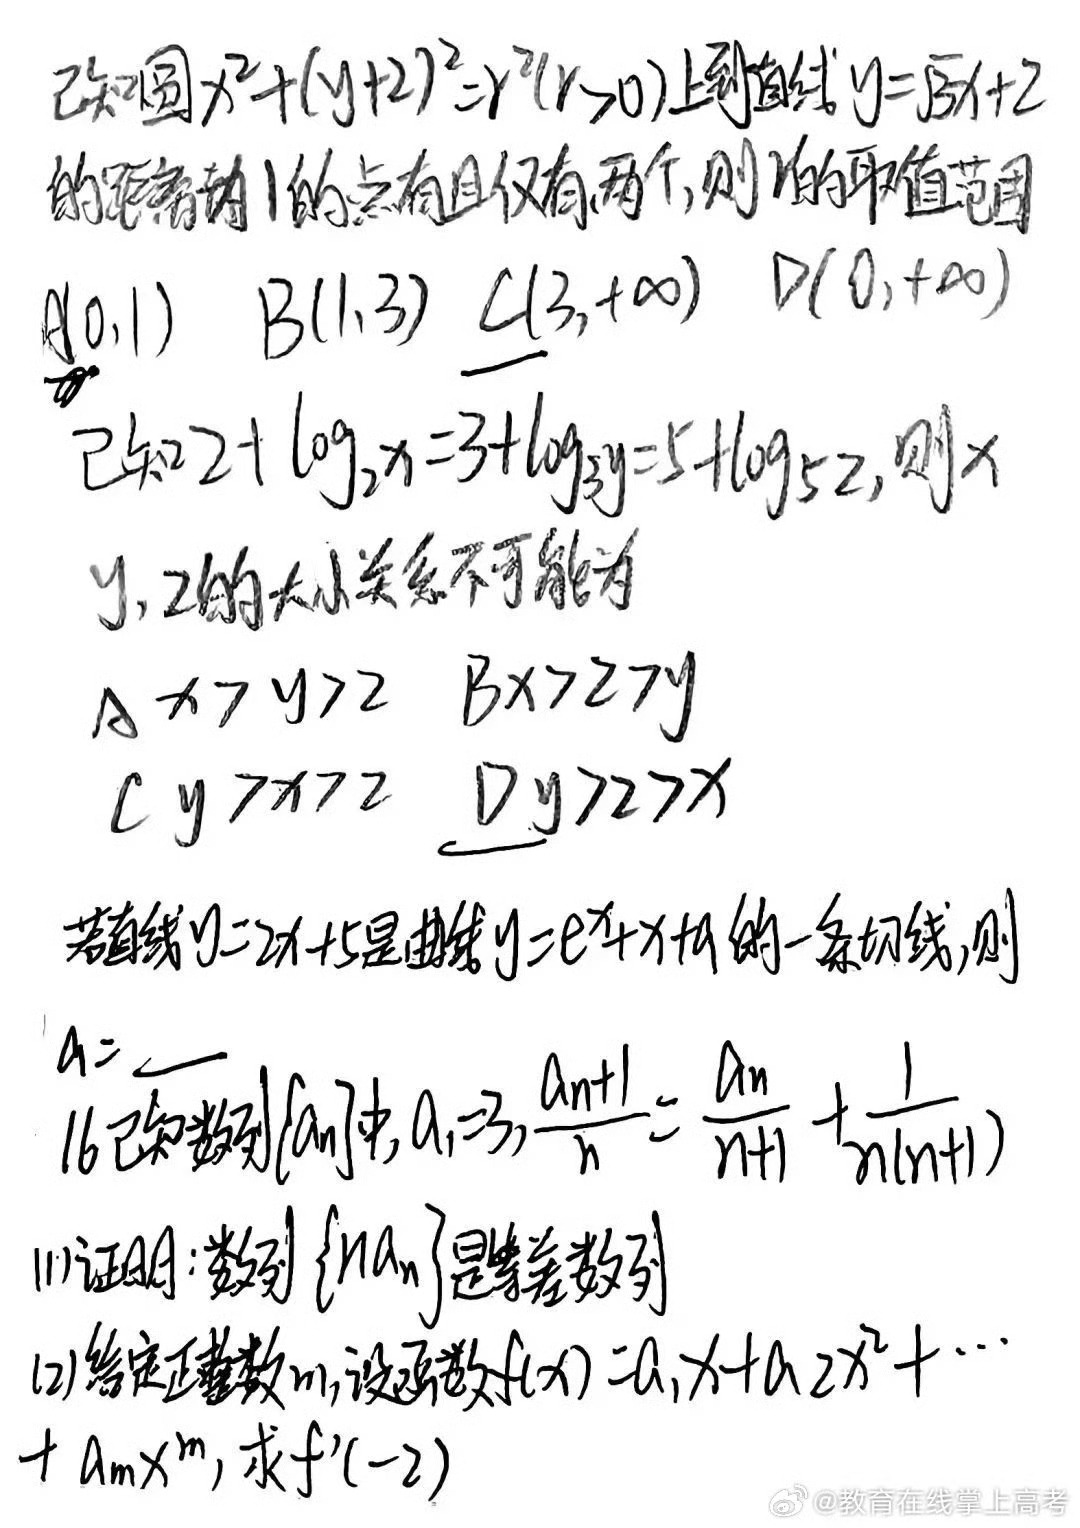 已知圆x²+(y+2)²=r²(r>0)上到直线y=√3x+2
的距离为1的点有且仅有两个,则r的取值范围
A(0,1) B(1,3) C(3,+∞) D(0,+∞)
已知2+log₂x=3+log₃y=5+log₅z,则x
y,z的大小关系不可能为
A x>y>z B x>z>y
C y>x>z D y>z>x
若直线y=2x+5是曲线y=eˣ+x+a的一条切线,则
a=__
16已知数列{aₙ}中,a₁=3,aₙ₊₁/n=aₙ/(n+1)+1/n(n+1)
(1)证明:数列{naₙ}是等差数列
(2)给定正整数m,设函数f(x)=a₁x+a₂x²+…
+aₘxᵐ,求f'(-2)
@教育在线掌上高考